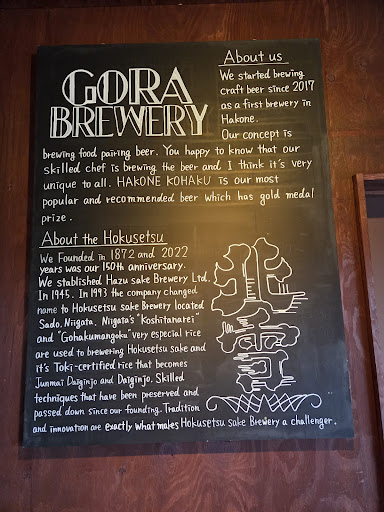 GORA
BREWERY
About us
We started brewing
craft beer since 2017
as a first brewery in
Hakone.
Our concept is
brewing food pairing beer. You happy to know that our
skilled chef is brewing the beer and I think it's very
unique to all. HAKONE KOHAKU is our most
popular and recommended beer which has gold medal
prize.
About the Hokusetsu
We Founded in 1872 and 2022
years was our 150th anniversary.
We stablished Hazu sake Brewery Ltd.
In 1945. In 1993 the company changed
name to Hokusetsu sake Brewery located
Sado, Niigata. Niigata's "Koshitanarei"
and "Gohakumangoku" very especial rice
are used to brewering Hokusetsu sake and
it's Toki-certified rice that becomes
Junmai Daiginjo and Daiginjo. Skilled
techniques that have been preserved and
passed down since our founding. Tradition
and innovation are exactly what makes Hokusetsu sake Brewery a challenger.
北雪